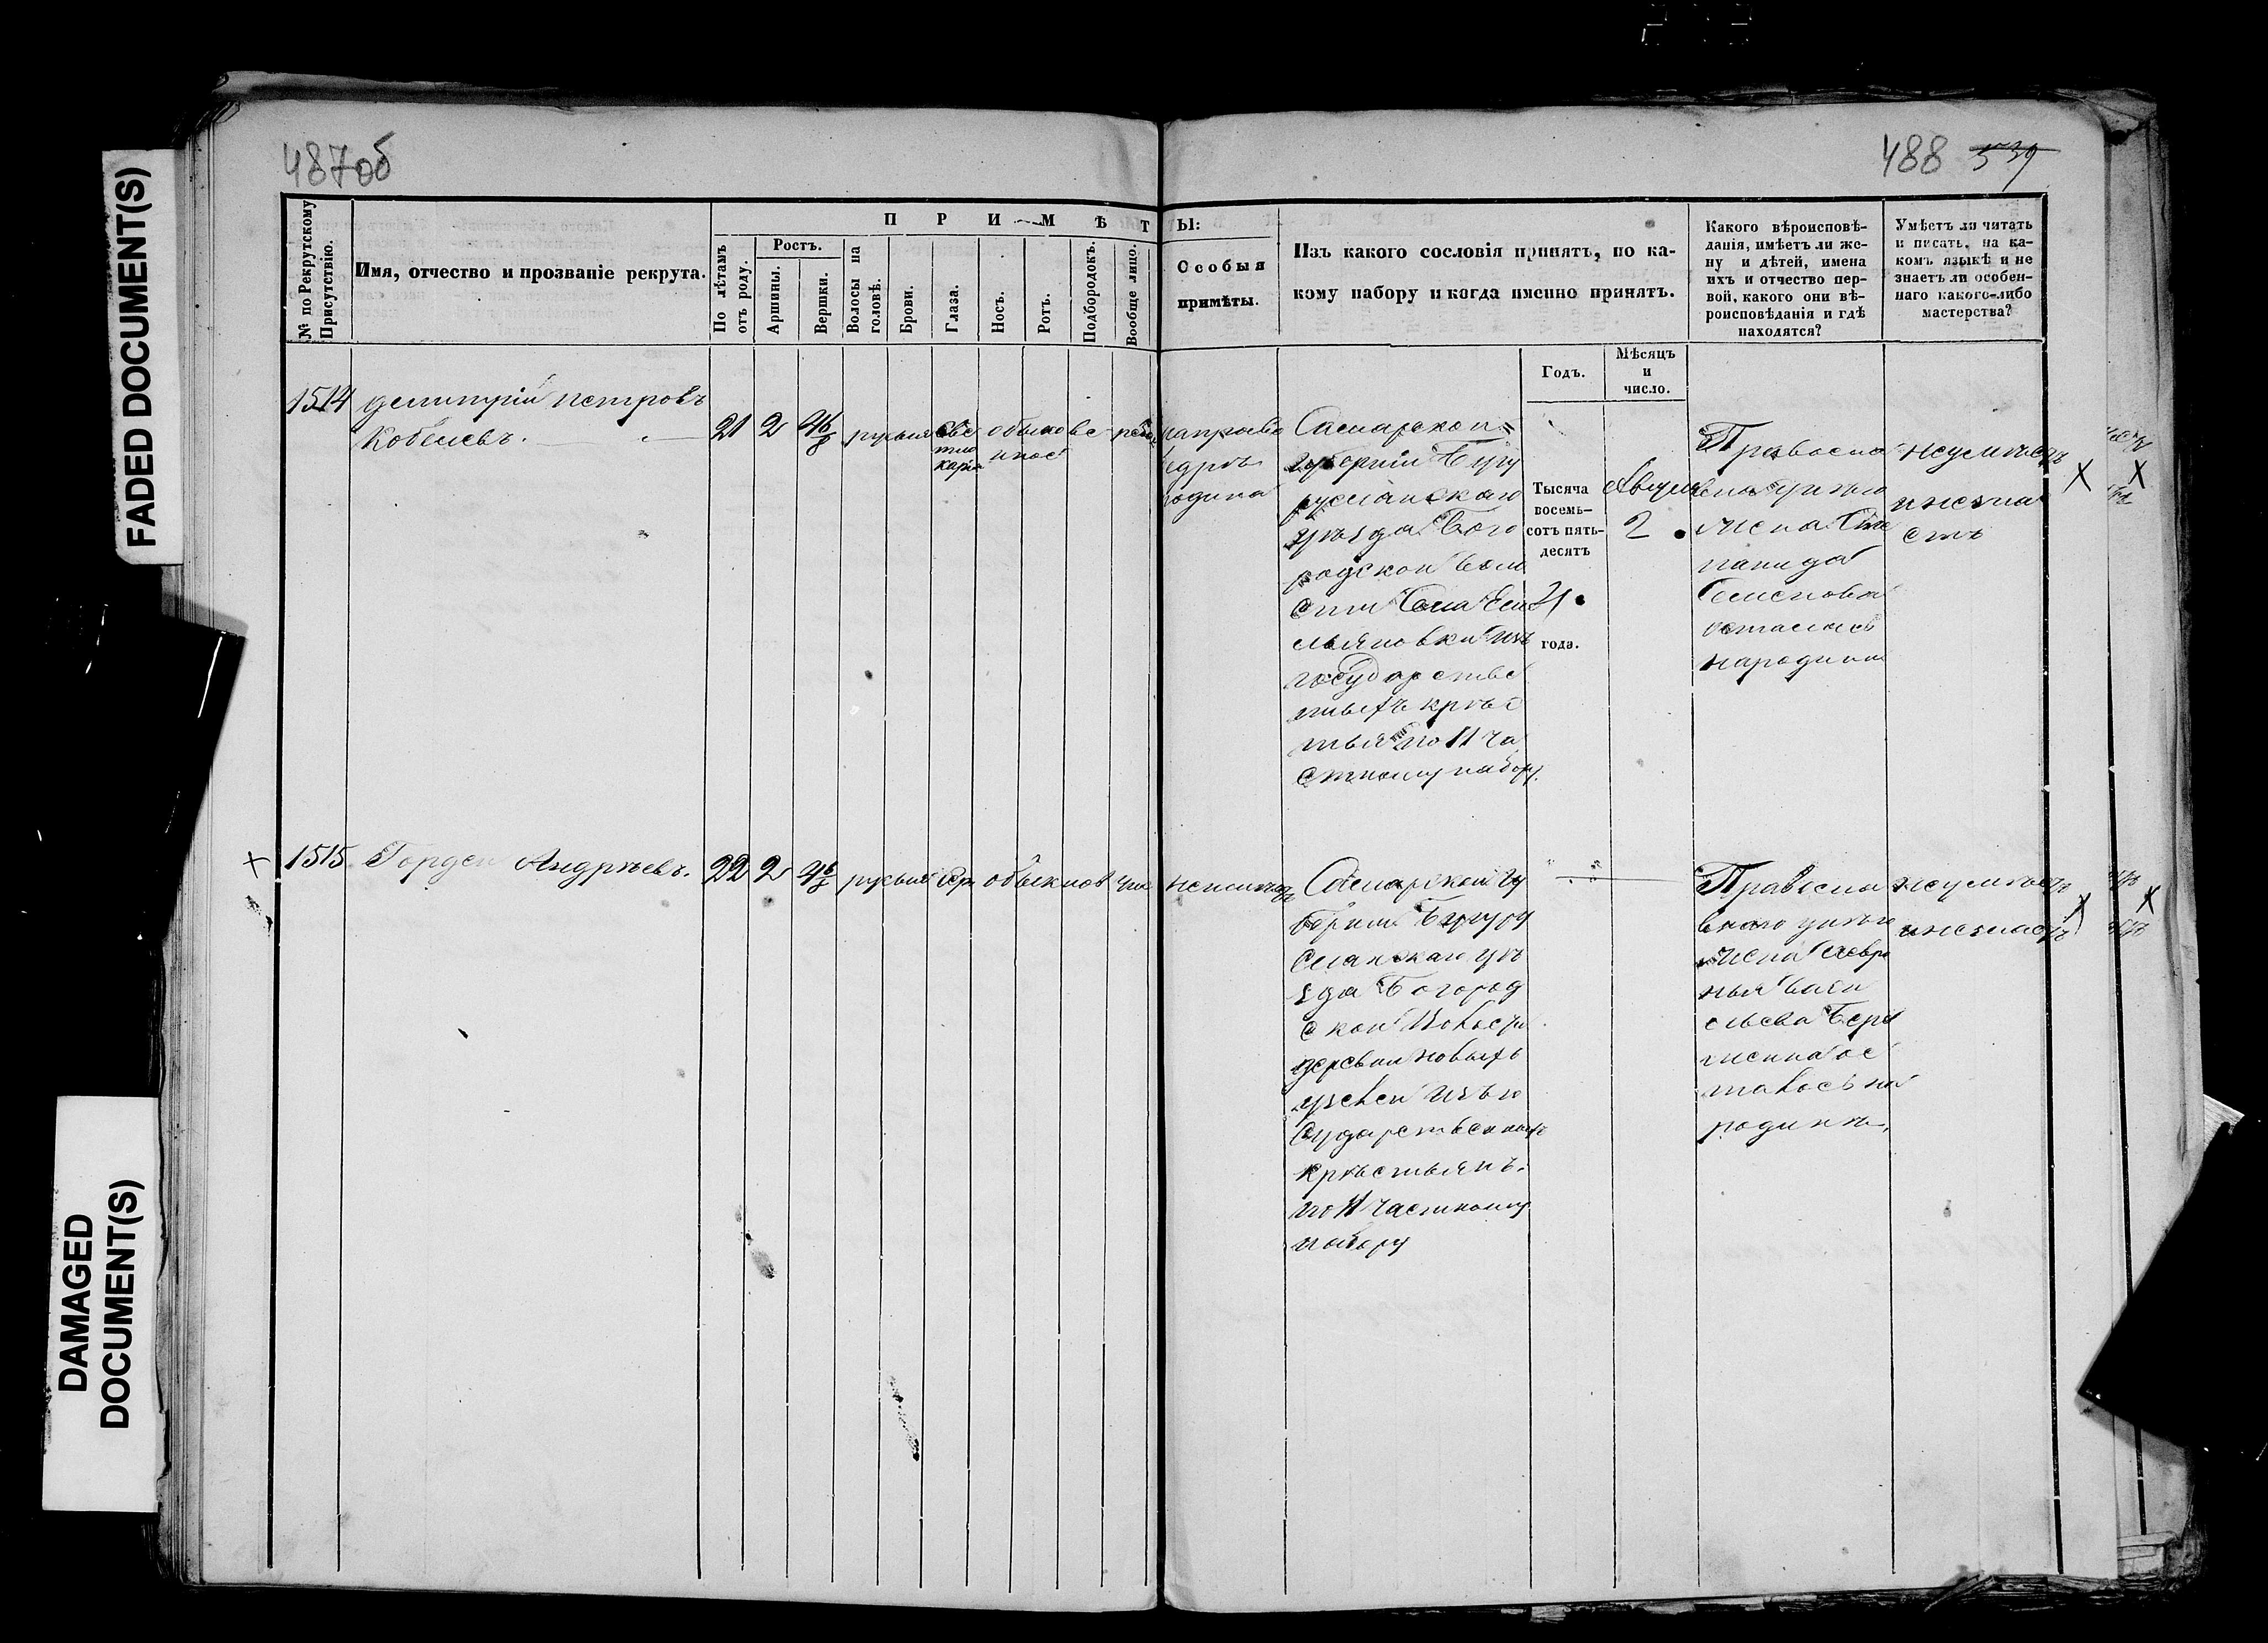 FADED DOCUMENT(S)
DAMAGED
DOCUMENT(S)
487об
488 539
№ по Рекрутскому
Присутствію.
Имя, отчество и прозваніе рекрута.
ПРИМѢТЫ:
По лѣтамъ
отъ роду.
Ростъ.
Аршины.
Вершки.
Волосы на
головѣ.
Брови.
Глаза.
Носъ.
Ротъ.
Подбородокъ.
Вообще лицо.
Особыя
примѣты.
Изъ какого сословія принятъ, по ка-
кому набору и когда именно принятъ.
Годъ.
Мѣсяцъ
и
число.
Какого вѣроисповѣ-
данія, имѣетъ ли же-
ну и дѣтей, имена
ихъ и отчество пер-
вой, какого они вѣ-
роисповѣданія и гдѣ
находятся?
Умѣетъ ли читать
и писать, на ка-
комъ языкѣ и не
знаетъ ли особен-
наго какого-либо
мастерства?
1514
Дмитрій Петровъ
Кобелевъ.
21 2 4 6/8 русыя
свѣ
тло
карія
обыкнове
нное
направо
бедрѣ
родина
Самарской
губерніи Бугу
русланскаго
уѣзда Бого
родской воло
сти села Еме
льяновки изъ
государстве
нныхъ крѣс
тьянъ по 11 ча
стному набору.
Тысяча
восемь-
сотъ пять-
десятъ
21
года.
Августа
2
Православ
наго у него
жена Сте
панида
Семенова
осталась
народинѣ
неумѣетъ
и незна
етъ
1515
Гордей Андреевъ.
22 2 4 6/8 русыя сѣр обыкнов чис
неимѣетъ
Самарской гу
берніи Бугуру
сланскаго уѣ
зда Богород
ской волости
деревни новыхъ
узелей изъ го
сударственныхъ
крѣстьянъ.
по 11 частному
набору
Правосла
внаго у него
жена Февро
нья Васи
льева бере
менна ос
талось на
родинѣ.
неумѣетъ
и незнаетъ